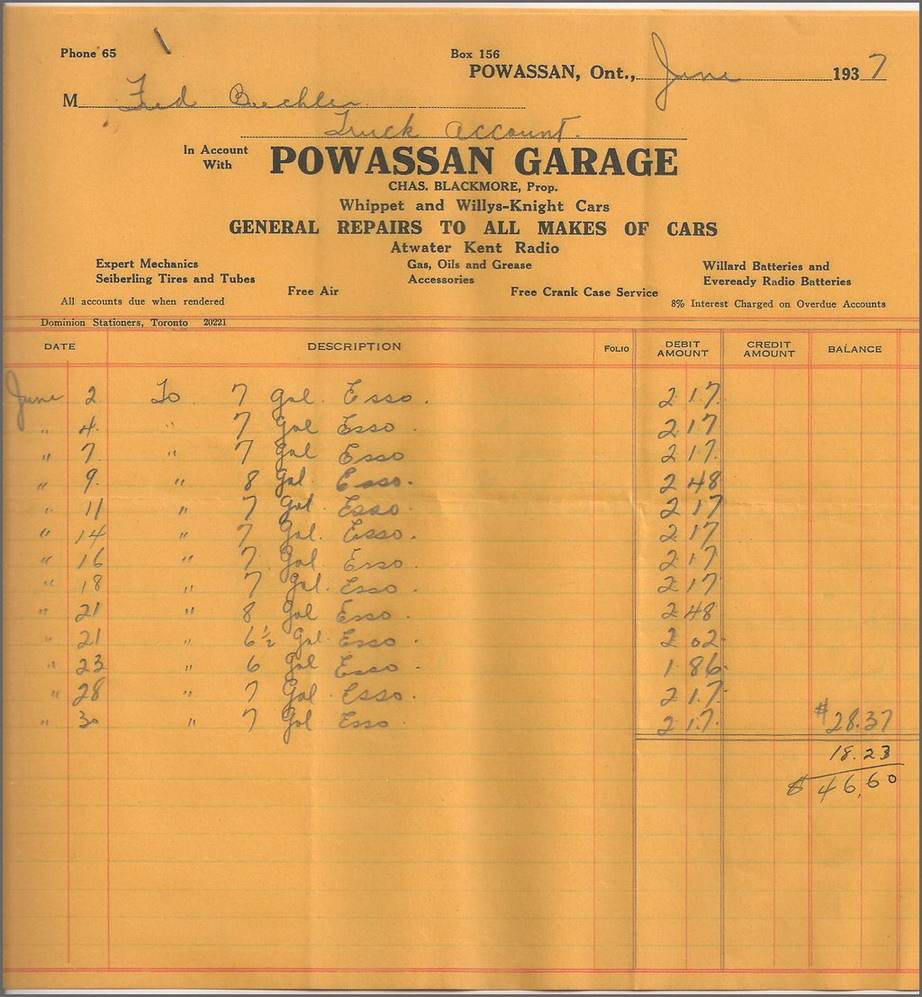 Phone 65 Box 156
POWASSAN, Ont., June 1937
M Fred Buchler
Truck Account.
In Account With POWASSAN GARAGE
CHAS. BLACKMORE, Prop.
Whippet and Willys-Knight Cars
GENERAL REPAIRS TO ALL MAKES OF CARS
Atwater Kent Radio
Expert Mechanics Gas, Oils and Grease Willard Batteries and
Seiberling Tires and Tubes Accessories Eveready Radio Batteries
Free Air Free Crank Case Service
All accounts due when rendered 8% Interest Charged on Overdue Accounts
Dominion Stationers, Toronto 20221
DATE DESCRIPTION FOLIO DEBIT AMOUNT CREDIT AMOUNT BALANCE
June 2 To 7 Gal. Esso. 2 17
" 4 " 7 Gal Esso. 2 17
" 7 " 7 Gal Esso 2 17
" 9 " 8 Gal Esso. 2 48
" 11 " 7 Gal Esso. 2 17
" 14 " 7 Gal. Esso. 2 17
" 16 " 7 Gal. Esso 2 17
" 18 " 7 Gal. Esso 2 17
" 21 " 8 Gal Esso 2 48
" 21 " 6½ Gal Esso. 2 02
" 23 " 6 Gal Esso. 1 86
" 28 " 7 Gal Esso. 2 17
" 30 " 7 Gal Esso 2 17 $28.37
18.23
$ 46.60